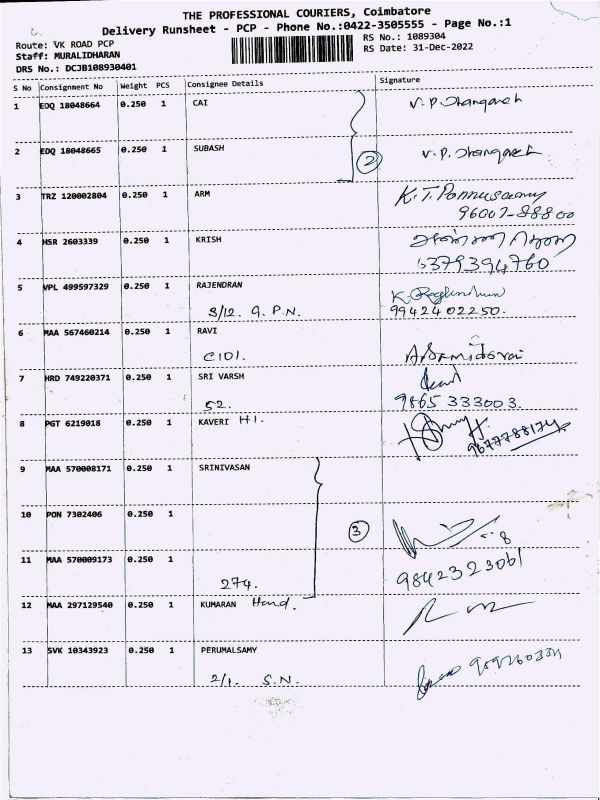 THE PROFESSIONAL COURIERS, Coimbatore
Delivery Runsheet - PCP - Phone No.:0422-3505555 - Page No.:1
Route: VK ROAD PCP
Staff: MURALIDHARAN
DRS No.: DCJB108930401
RS No.: 1089304
RS Date: 31-Dec-2022
S No Consignment No Weight PCS Consignee Details Signature
1 EDQ 18048664 0.250 1 CAI
2 EDQ 18048665 0.250 1 SUBASH
2
3 TRZ 120002804 0.250 1 ARM K.T. Ponnusamy
96007-88800
4 HSR 2603339 0.250 1 KRISH
6379394760
5 VPL 499597329 0.250 1 RAJENDRAN
3/12. G.P.N. 9942402250.
6 MAA 567460214 0.250 1 RAVI
C101.
7 HRD 749220371 0.250 1 SRI VARSH
52. 9865 333003.
8 PGT 6219018 0.250 1 KAVERI H1.
9677788174
9 MAA 570008171 0.250 1 SRINIVASAN
10 PON 7302406 0.250 1
3
11 MAA 570009173 0.250 1
274. 9842323061
12 MAA 297129540 0.250 1 KUMARAN Hand.
13 SVK 10343923 0.250 1 PERUMALSAMY
2/1. S.N.